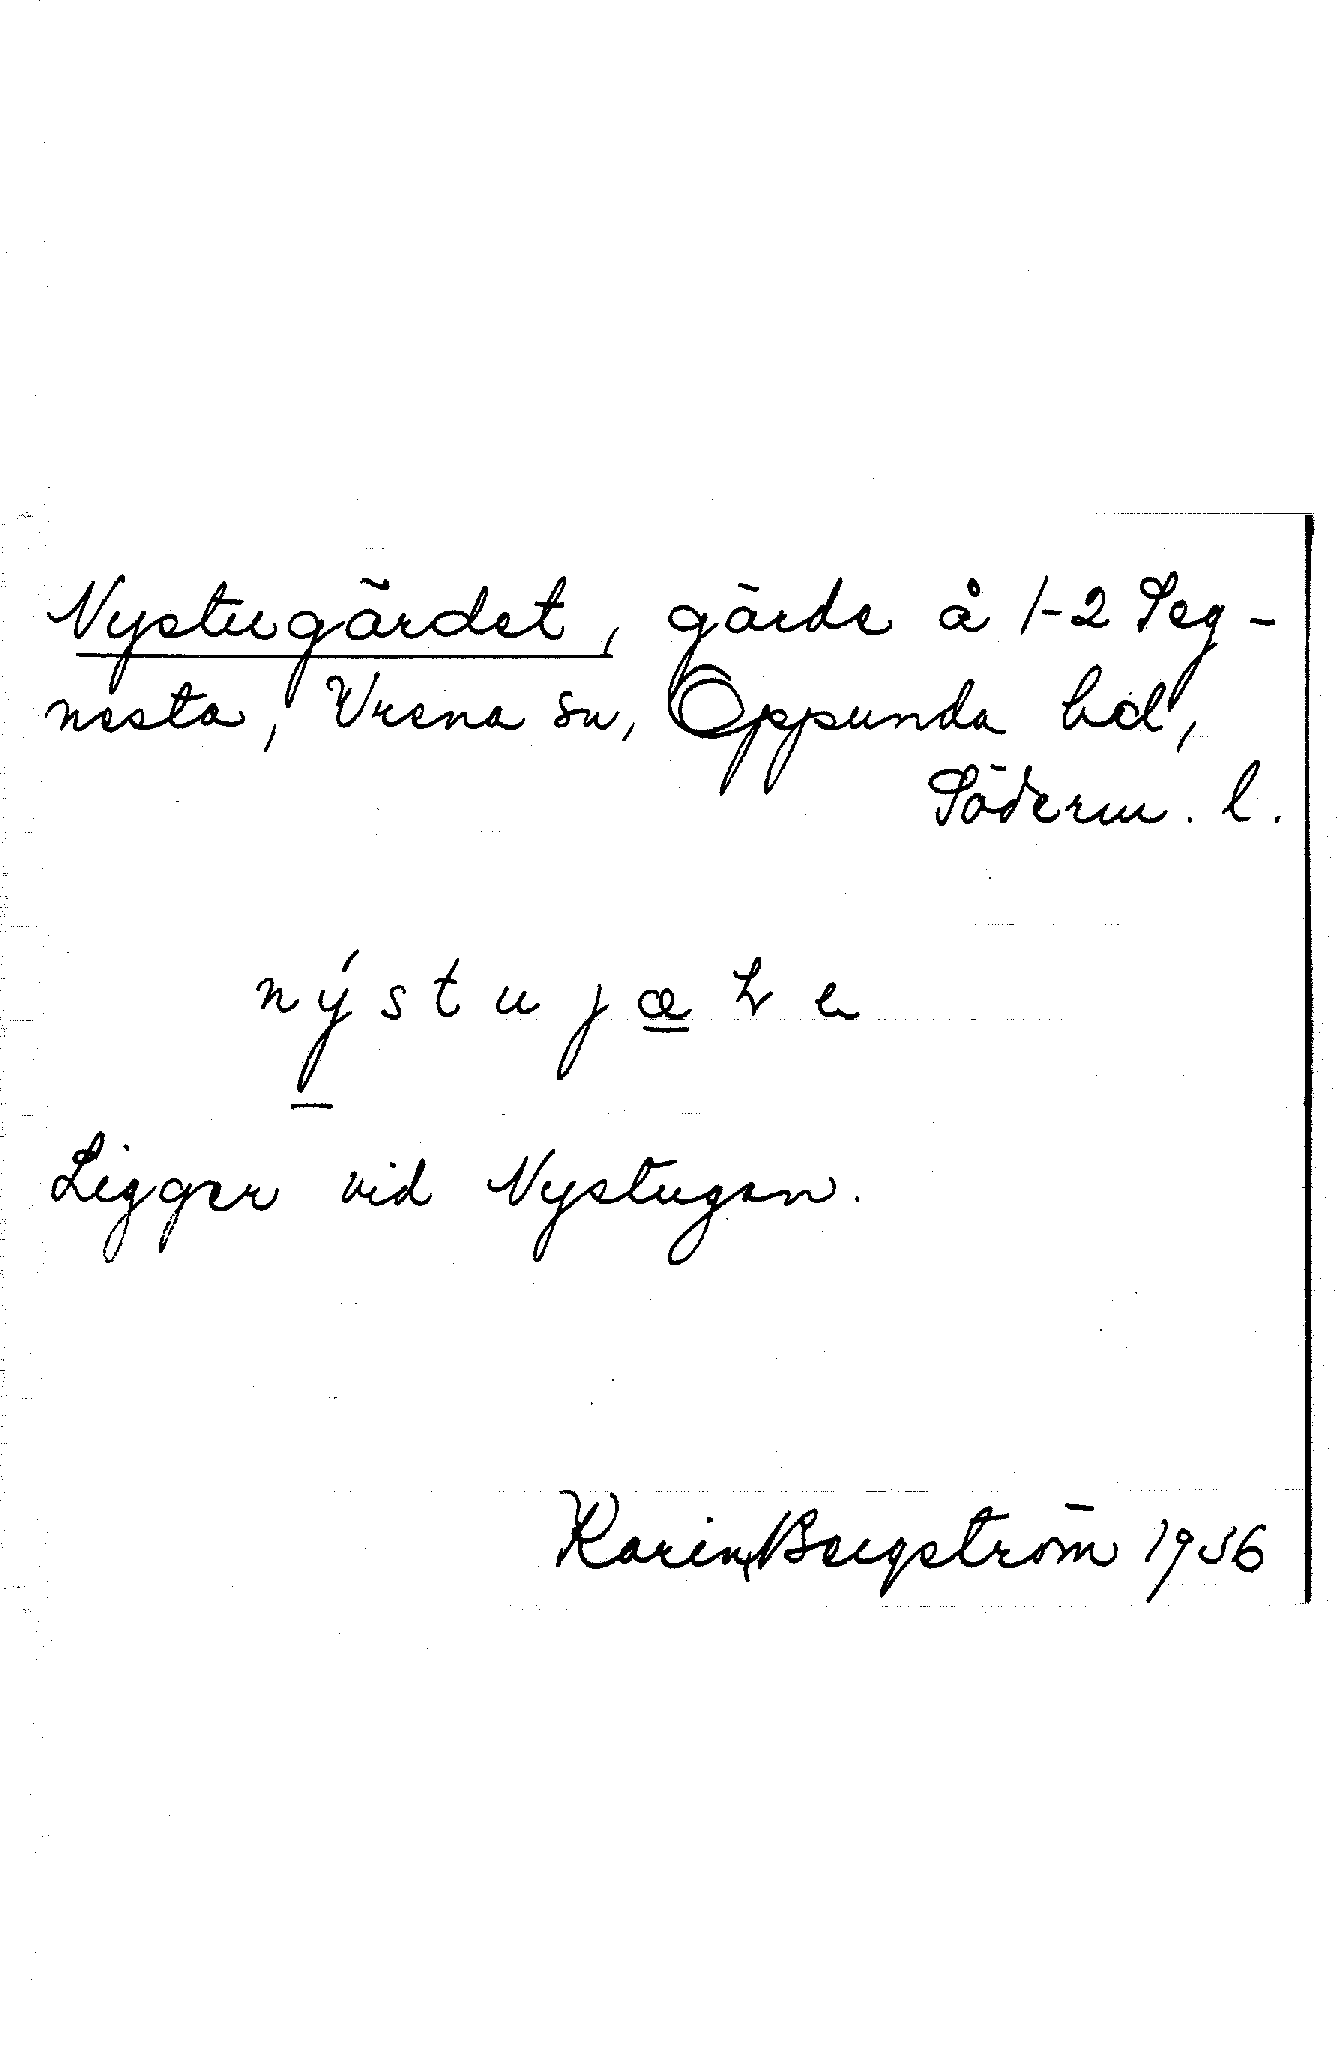 Nystugärdet, gärde å 1-2 Seg-
nesta, Vrena sn, Oppunda hd,
Söderm. l.
Ligger vid Nystugan.
Karin Bergström 1936